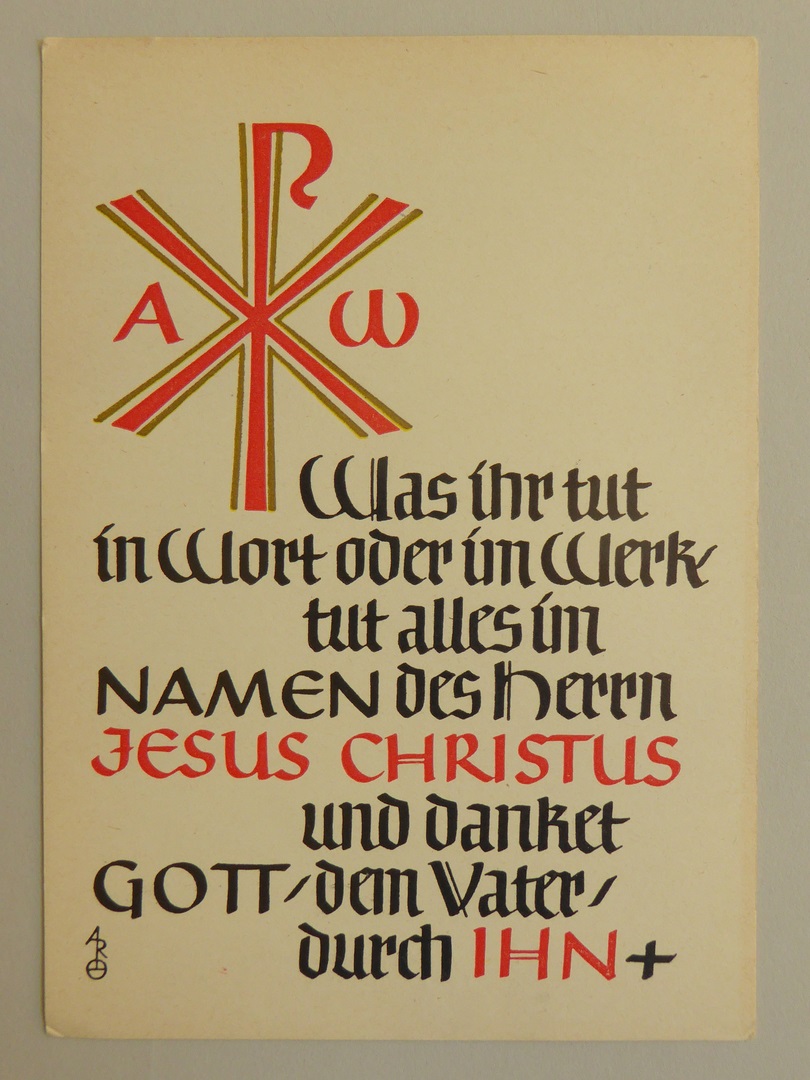 P
A ω
Was ihr tut
in Wort oder im Werk/
tut alles im
NAMEN des Herrn
JESUS CHRISTUS
und danket
GOTT/dem Vater/
durch IHN+
ARO